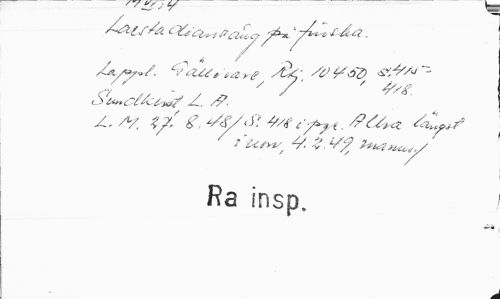 Laestadiansång på finska.
Lappl. Gällivare, Rtj. 10450, s. 415-
418.
Sundkvist, L. A.
L. M. 27. 8. 48/ S. 418 i pye. Allra längst
i norr, 4.2.49, manus./
Ra insp.